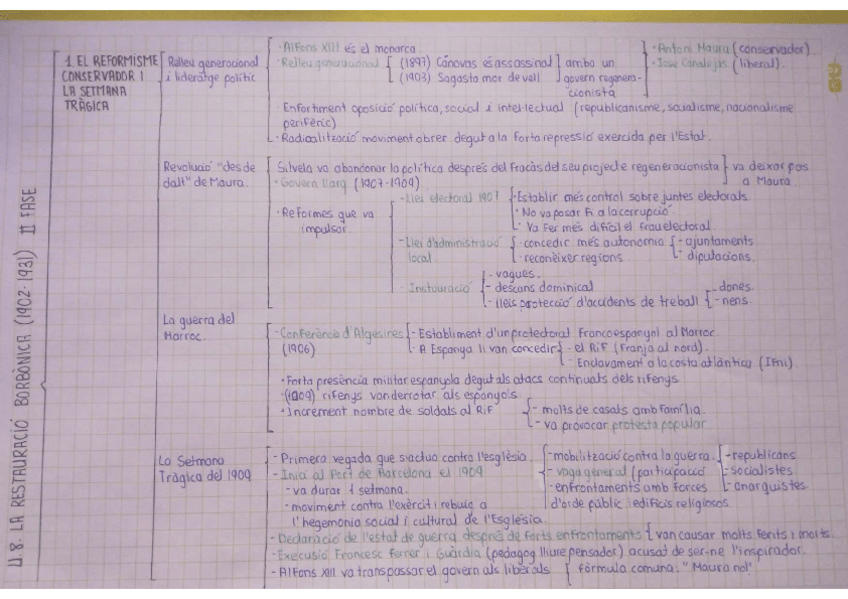 U.8. LA RESTAURACIÓ BORBÒNICA (1902-1931) II FASE
1. EL REFORMISME
CONSERVADOR I
LA SETMANA
TRÀGICA
Relleu generacional
i lideratge polític
· Alfons XIII és el monarca
· Relleu generacional
(1897) Cánovas és assassinat
(1903) Sagasta mor de vell
amb un
govern regenera-
cionista
- Antoni Maura (conservador)
- Jose Canalejas (liberal).
· Enfortiment oposició política, social i intel·lectual (republicanisme, socialisme, nacionalisme
perifèric)
· Radicalització moviment obrer degut a la forta repressió exercida per l'Estat.
Revolució "des de
dalt" de Maura.
Silvela va abandonar la política després del fracàs del seu projecte regeneracionista
va deixar pas
a Maura
· Govern llarg (1907-1909)
· Reformes que va
impulsar
- Llei electoral 1907
- Establir més control sobre juntes electorals.
· No va posar fi a la corrupció
· Va fer més difícil el frau electoral.
- Llei d'administració
local
· concedir més autonomia
- ajuntaments
- diputacions.
· reconèixer regions
· Instauració
- vagues.
- descans dominical
- lleis protecció d'accidents de treball
- dones.
- nens.
La guerra del
Marroc.
- Conferència d'Algesires
(1906)
- Establiment d'un protectorat francoespanyol al Marroc.
- A Espanya li van concedir
- el Rif (franja al nord).
- Enclavament a la costa atlàntica (Ifni)
· Forta presència militar espanyola degut als atacs continuats dels rifenys
· (1909) rifenys van derrotar als espanyols
· Increment nombre de soldats al Rif
- molts de casats amb família.
- va provocar protesta popular
La Setmana
Tràgica del 1909
- Primera vegada que s'actua contra l'església
- Inici al Port de Barcelona el 1909
- va durar 1 setmana.
- moviment contra l'exèrcit i rebuig a
l'hegemonia social i cultural de l'Església.
- mobilització contra la guerra.
- vaga general (participació
- republicans
- socialistes
- anarquistes.
- enfrontaments amb forces
d'ordre públic i edificis religiosos.
- Declaració de l'estat de guerra després de forts enfrontaments
van causar molts ferits i morts.
- Execusió Francesc Ferrer i Guàrdia (pedagog lliurepensador) acusat de ser-ne l'inspirador.
- Alfons XIII va transpassar el govern als liberals
fórmula comuna: "Maura no!"